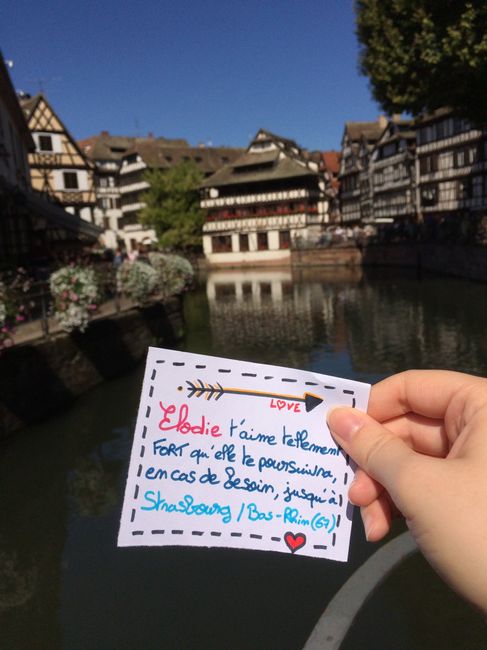 LOVE
Elodie t'aime tellement
FORT qu'elle te poursuivra,
en cas de besoin, jusqu'à
Strasbourg / Bas-Rhin (67)